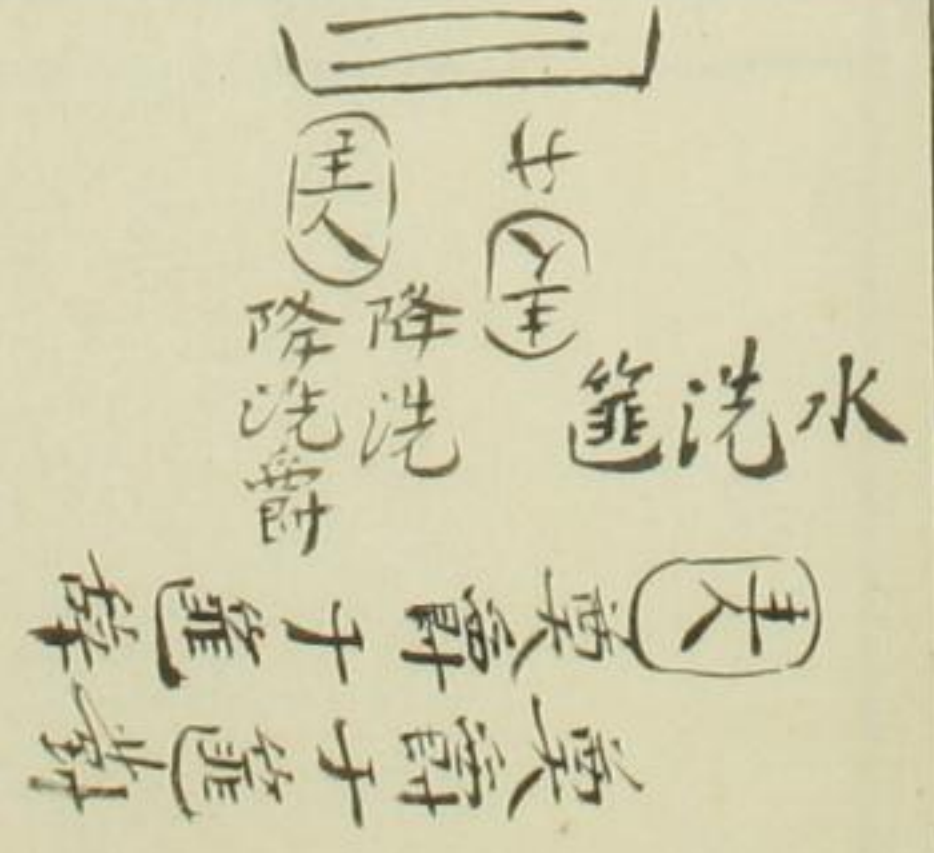 主人
降洗
降洗爵
主人升
水
洗
篚
主人
奠爵于篚辭
奠爵于篚對